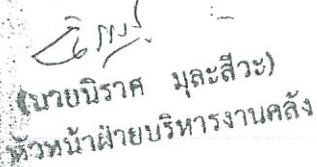 (นายนิราศ มุละสีวะ)
หัวหน้าฝ่ายบริหารงานคลัง